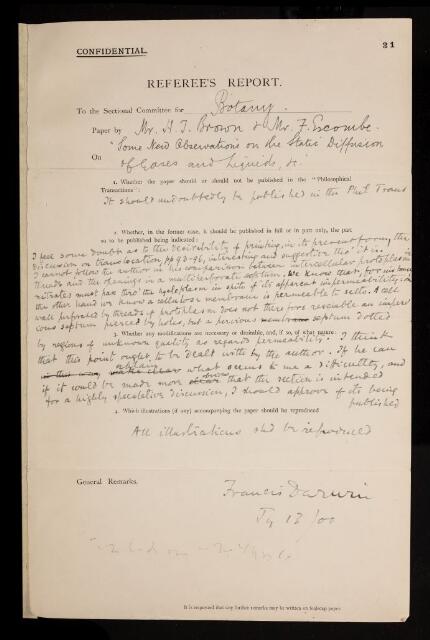 CONFIDENTIAL.
21
REFEREE'S REPORT.
To the Sectional Committee for Botany.
Paper by Mr. H. T. Brown & Mr. F. Escombe.
On "Some New Observations on the Static Diffusion
of Gases and Liquids, &c
1. Whether the paper should or should not be published in the "Philosophical
Transactions":
It should undoubtedly be published in the Phil Trans
2. Whether, in the former case, it should be published in full or in part only, the part
so to be published being indicated:
I feel some doubt as to the desirability of printing, in its present form, the
discussion on translocation, pp 93-96, interesting and suggestive tho' it is.
I cannot follow the author in his comparison between intercellular protoplasmic
threads and the openings in a multiperforate septum. We know that, for instance
nitrates must pass thro' the protoplasm in spite of its apparent impermeability. On
the other hand we know a cellulose membrane is permeable to salts. A cell
wall perforated by threads of protoplasm does not therefore resemble an imper
vious septum pierced by holes, but a pervious septum dotted
by regions of unknown quality as regards permeability. I think
3. Whether any modifications are necessary or desirable, and, if so, of what nature:
that this point ought to be dealt with by the author. If he can
explain what seems to me a difficulty, and
if it could be made more that the section is intended
for a highly speculative discussion, I should approve of its being
published
4. Which illustrations (if any) accompanying the paper should be reproduced
All illustrations shd be reproduced
General Remarks.
Francis Darwin
/00
It is requested that any further remarks may be written on foolscap paper.